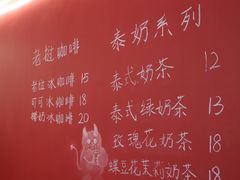 老挝咖啡
老挝冰咖啡 15
可可冰咖啡 18
椰奶冰咖啡 20
泰奶系列
泰式奶茶 12
泰式绿奶茶 13
玫瑰花奶茶 18
蝶豆花茉莉奶茶 18